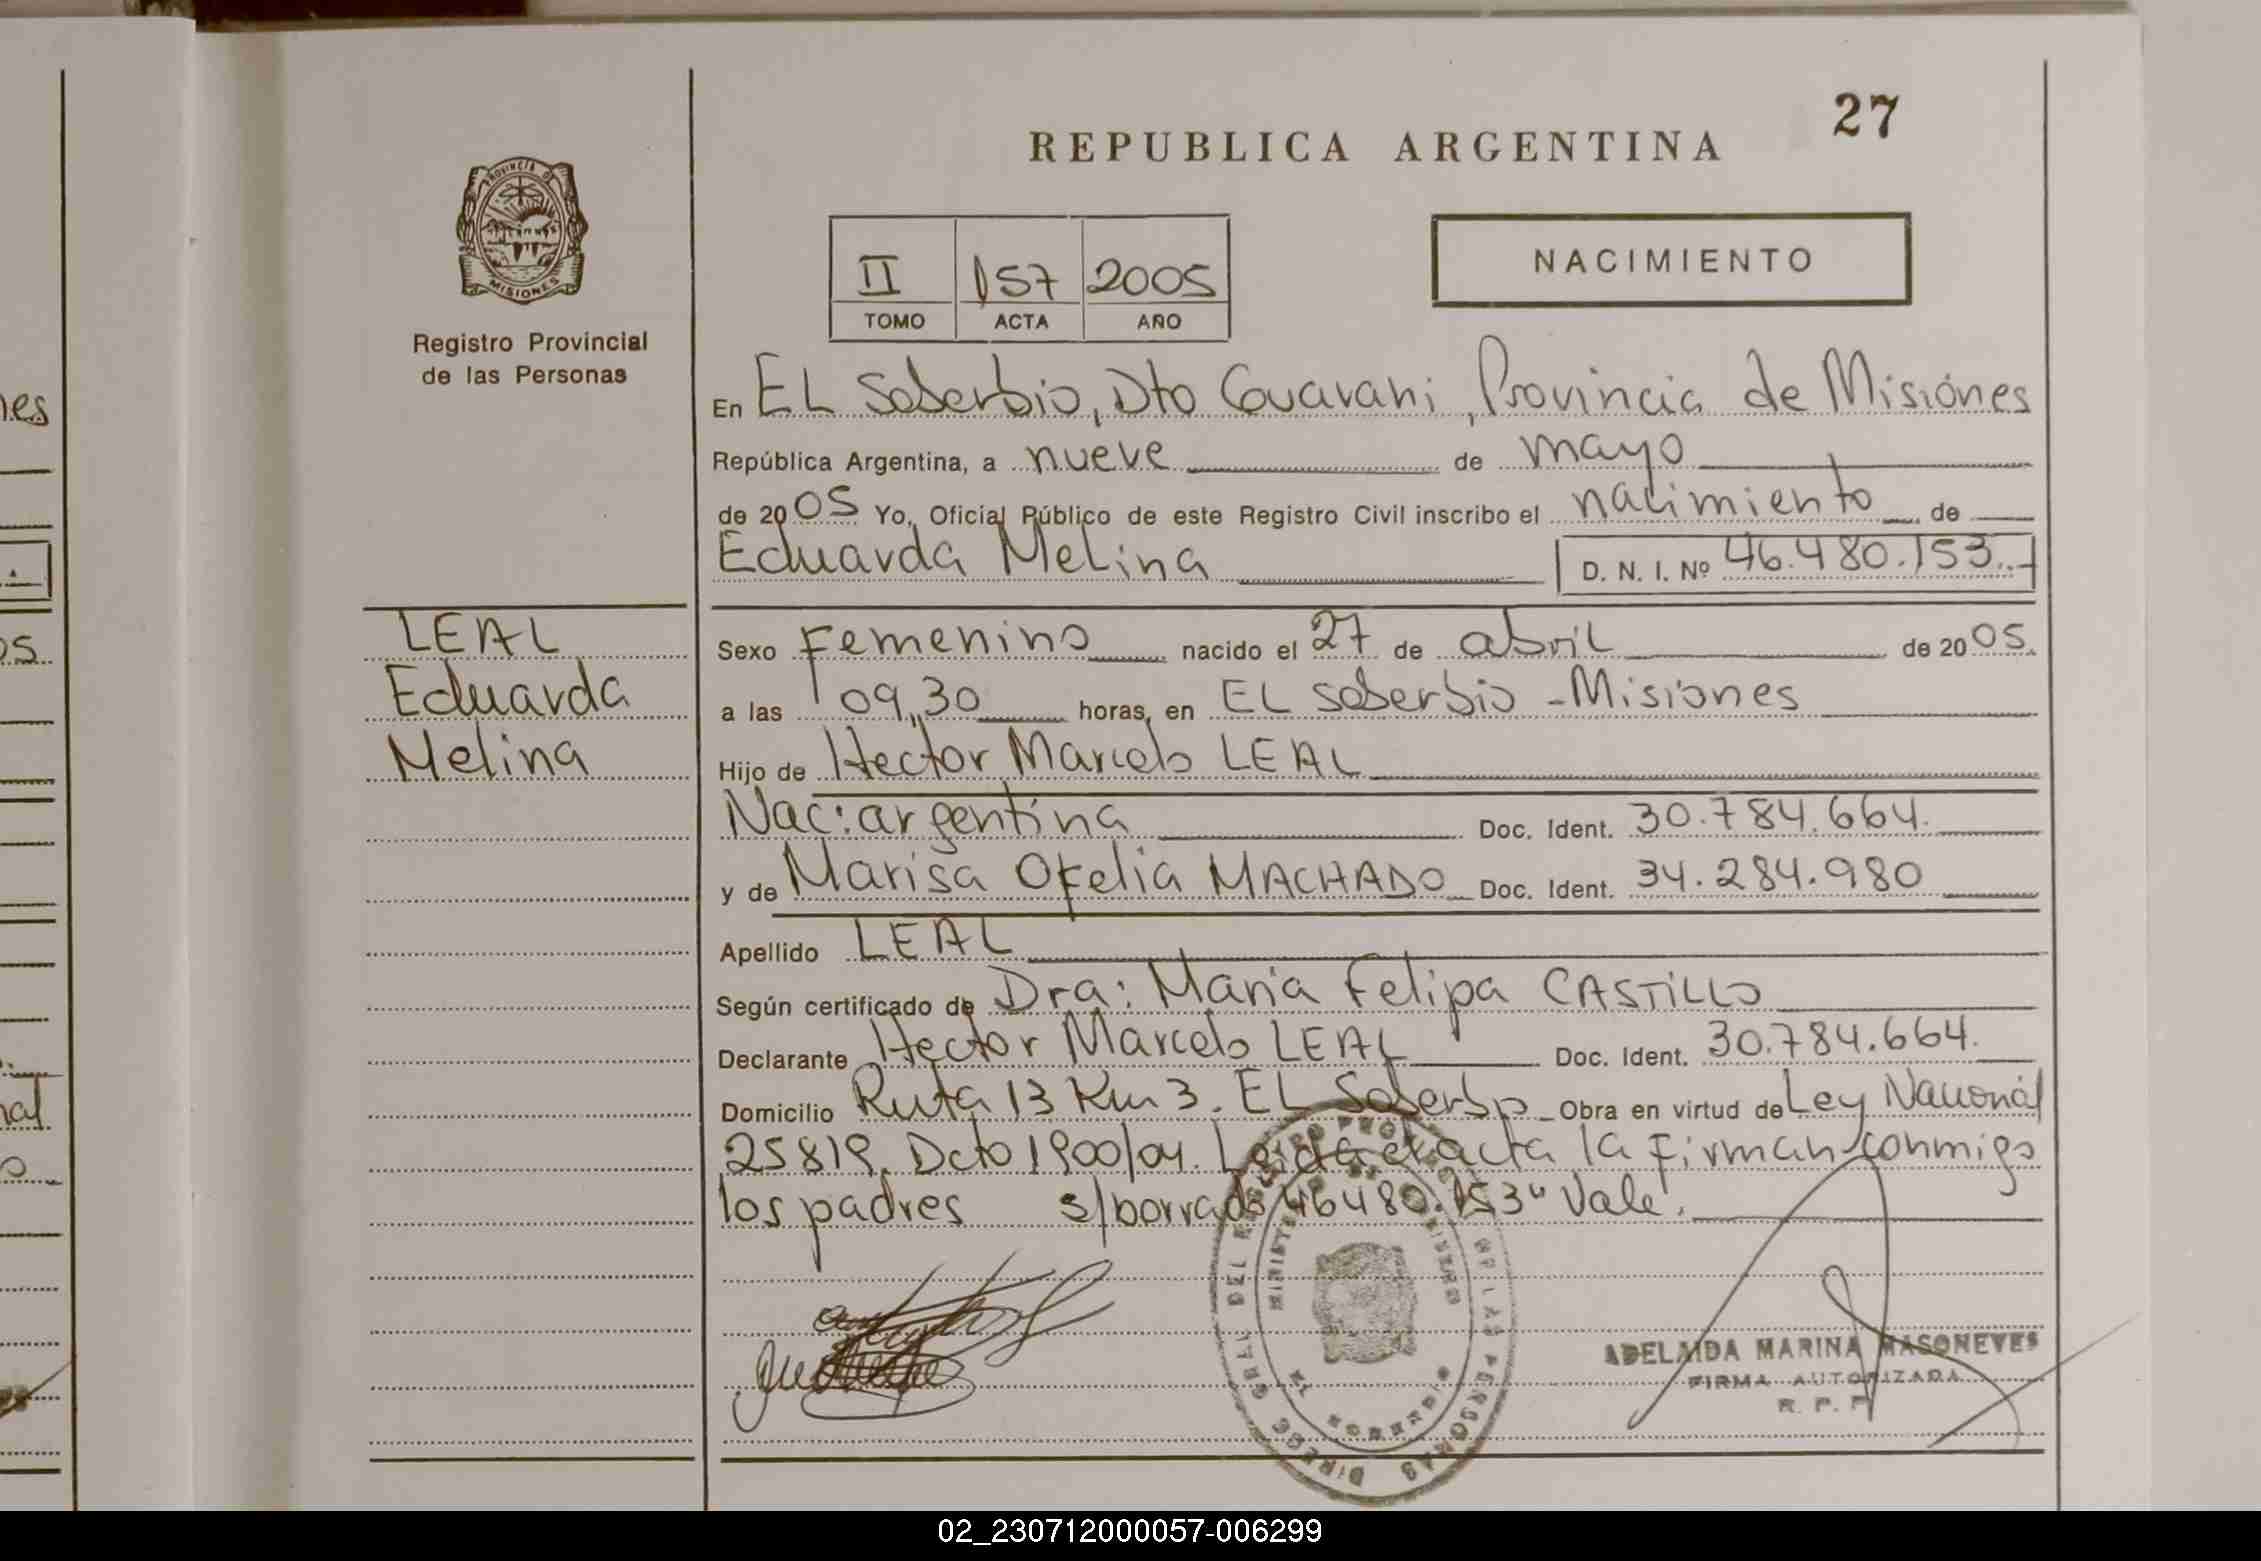 27
REPUBLICA ARGENTINA
PROVINCIA DE
MISIONES
Registro Provincial
de las Personas
II 157 2005
TOMO ACTA AÑO
NACIMIENTO
En EL Soberbio, Dto Guaraní, Provincia de Misiónes
República Argentina, a nueve de mayo
de 2005 Yo, Oficial Público de este Registro Civil inscribo el nacimiento de
Eduarda Melina D. N. I. Nº 46.480.153.
LEAL
Eduarda
Melina
Sexo Femenino nacido el 27 de abril de 2005.
a las 09,30 horas, en EL Soberbio - Misiones
Hijo de Hector Marcelo LEAL
Nac: argentina Doc. Ident. 30.784.664.
y de Marisa Ofelia MACHADO Doc. Ident. 34.284.980
Apellido LEAL
Según certificado de Dra: Maria Felipa CASTILLO
Declarante Hector Marcelo LEAL Doc. Ident. 30.784.664.
Domicilio Ruta 13 Km 3. EL Soberbio Obra en virtud de Ley Nacional
25819. Dcto 1900/04. Leida el acta la firman conmigo
los padres s/borrado 46480.153" Vale.
ADELAIDA MARINA MASONEVES
FIRMA AUTORIZADA
R. P. P
02_230712000057-006299